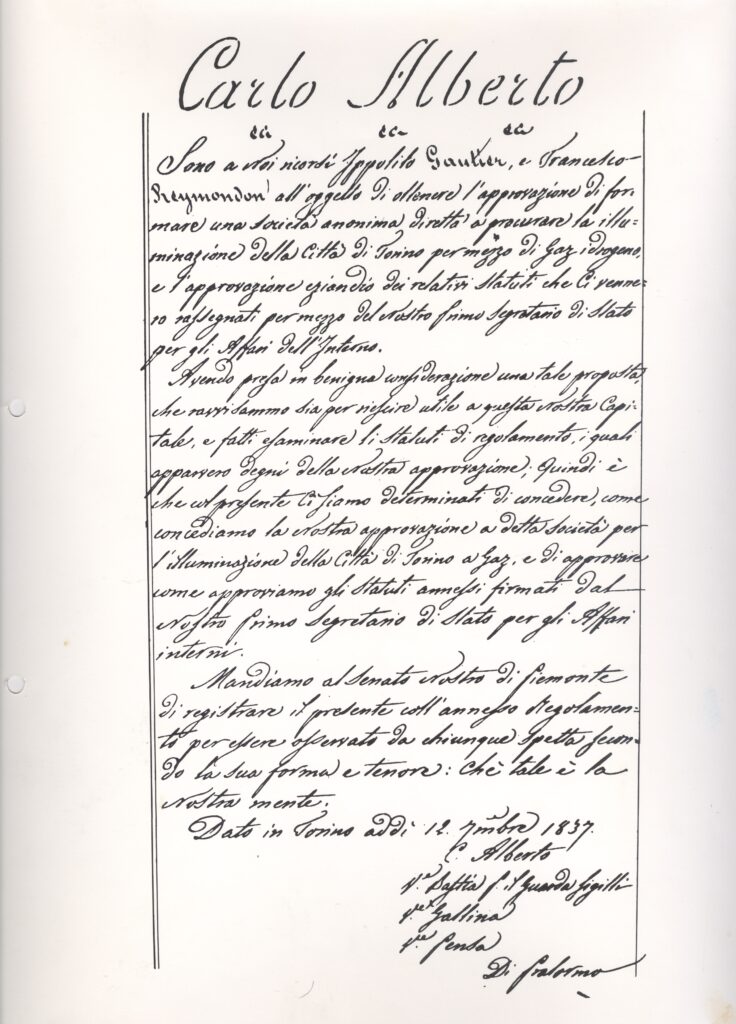 Carlo Alberto
ec. ec. ec.
Sono a Noi ricorsi Ippolito Gautier, e Francesco
Reymondon all'oggetto di ottenere l'approvazione di for-
mare una società anonima diretta a procurare la illu-
minazione della Città di Torino per mezzo di Gaz idrogeno,
e l'approvazione eziandio dei relativi Statuti che Ci venne-
ro rassegnati per mezzo del Nostro Primo Segretario di Stato
per gli Affari dell'Interno.
Avendo presa in benigna considerazione una tale proposta,
che ravvisammo sia per riescire utile a questa Nostra Capi-
tale, e fatti esaminare li Statuti di regolamento, i quali
apparvero degni della Nostra approvazione; Quindi è
che col presente Ci siamo determinati di concedere, come
concediamo la Nostra approvazione a detta società per
l'illuminazione della Città di Torino a Gaz, e di approvare
come approviamo gli Statuti annessi firmati dal
Nostro Primo Segretario di Stato per gli Affari
interni.
Mandiamo al Senato Nostro di Piemonte
di registrare il presente coll'annesso Regolamen-
to per essere osservato da chiunque spetta secon-
do la sua forma e tenore: Chè tale è la
Nostra mente.
Dato in Torino addì 12. 7mbre 1837.
C. Alberto
V.a Bastia p. il Guarda Sigilli
V.a Gallina
V.a Pensa
Di Pralormo